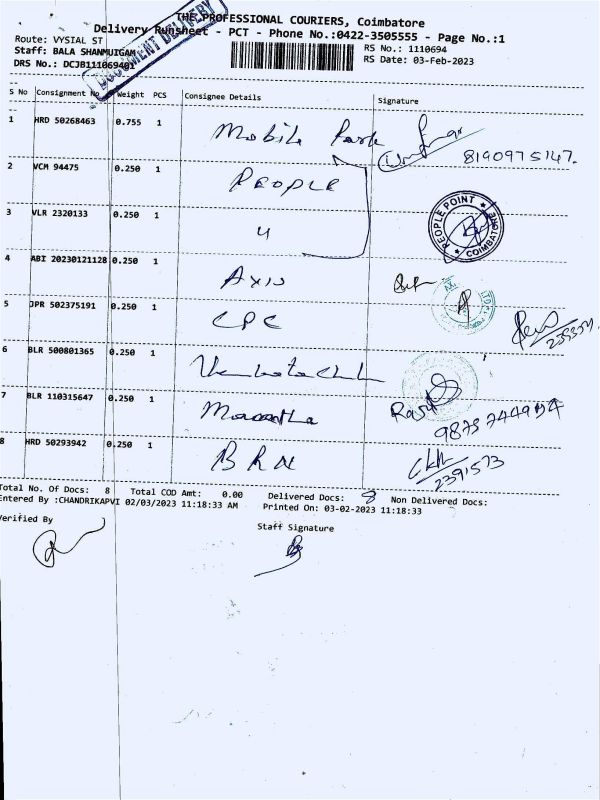 THE PROFESSIONAL COURIERS, Coimbatore
Delivery Runsheet - PCT - Phone No.:0422-3505555 - Page No.:1
DOCUMENT DELIVERY
Route: VYSIAL ST
RS No.: 1110694
Staff: BALA SHANMUIGAM
RS Date: 03-Feb-2023
DRS No.: DCJB111069401
S No Consignment No Weight PCS Consignee Details Signature
1 HRD 50268463 0.755 1 Mobile Park 8190975147.
2 VCM 94475 0.250 1 PEOPLE
3 VLR 2320133 0.250 1 4 PEOPLE POINT COIMBATORE
4 ABI 20230121128 0.250 1 Axis
5 JPR 502375191 0.250 1 CPC
6 BLR 500801365 0.250 1
7 BLR 110315647 0.250 1
8 HRD 50293942 0.250 1 BRN 2391573
Total No. Of Docs: 8 Total COD Amt: 0.00 Delivered Docs: 8 Non Delivered Docs:
Entered By :CHANDRIKAPVI 02/03/2023 11:18:33 AM Printed On: 03-02-2023 11:18:33
Verified By
Staff Signature